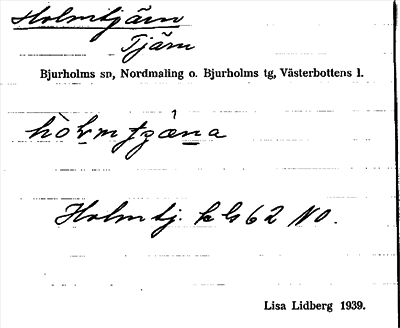 Holmtjärn
Tjärn
Bjurholms sn, Nordmaling o. Bjurholms tg, Västerbottens l.
Holmtj. k bl 62 NO.
Lisa Lidberg 1939.